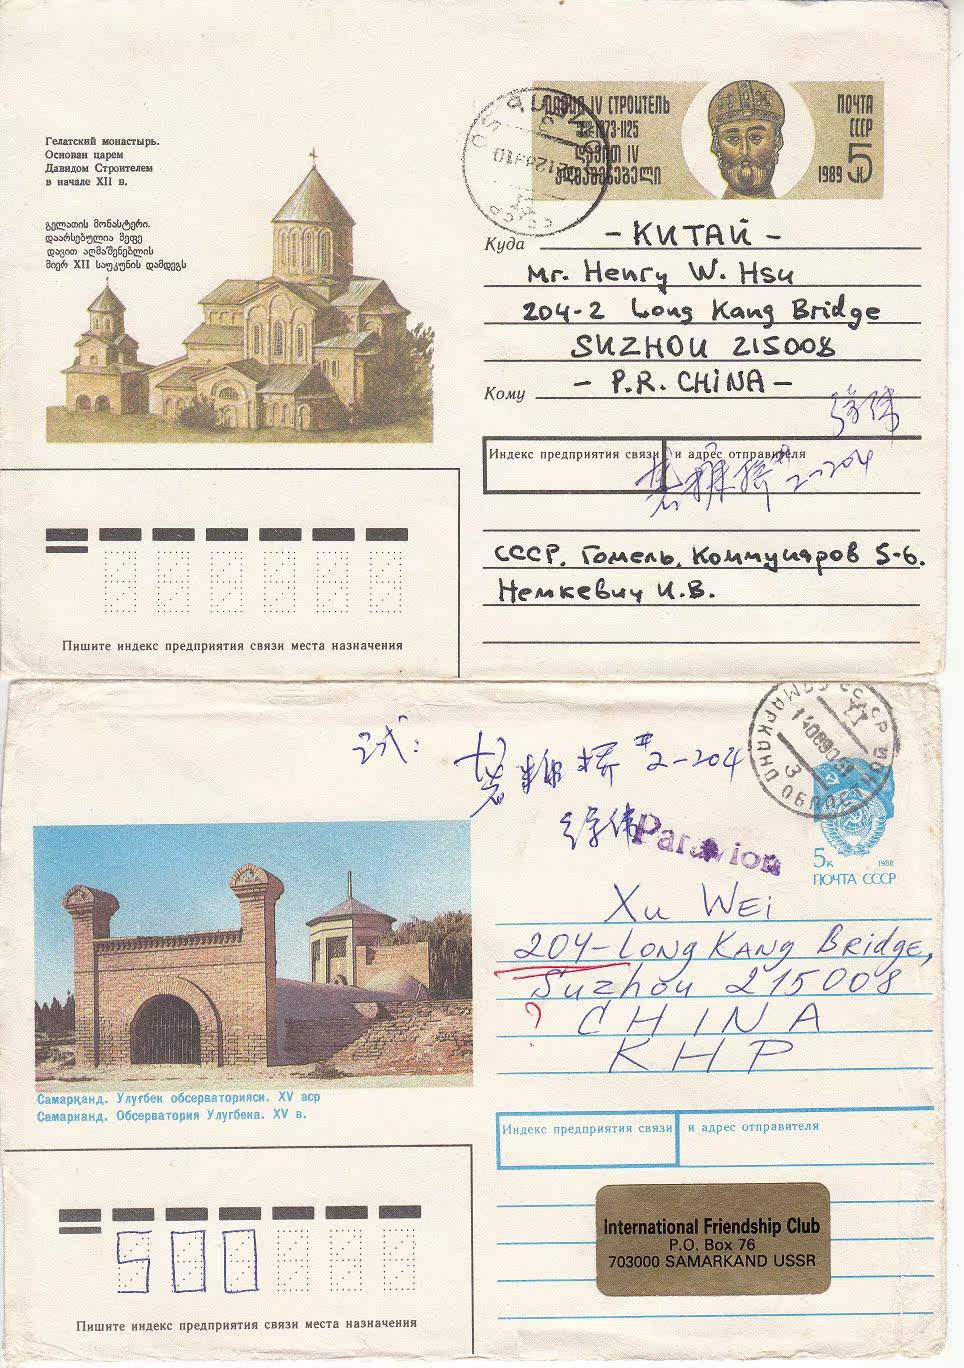 Гелатский монастырь.
Основан царем
Давидом Строителем
в начале XII в.
გელათის მონასტერი.
დაარსებულია მეფე
დავით აღმაშენებლის
მიერ XII საუკუნის დამდეგს
IV СТРОИТЕЛЬ
1073-1125
დავით IV
აღმაშენებელი
ПОЧТА
СССР
1989 5 к
Куда - КИТАЙ -
Mr. Henry W. Hsu
204-2 Long Kang Bridge
SUZHOU 215008
Кому - P.R. CHINA -
徐伟
Индекс предприятия связи и адрес отправителя
2-204
СССР. Гомель. Коммунаров 5-6.
Немкевич И.В.
Пишите индекс предприятия связи места назначения
试:
桥 #2-204
徐伟
Par avion
САМАРКАНД ОБЛАСТНОЙ
3
5к 1988
ПОЧТА СССР
Xu Wei
204-Long Kang Bridge,
Suzhou 215008
? CHINA
КНР
Самарқанд. Улуғбек обсерваторияси. XV аср
Самарканд. Обсерватория Улугбека. XV в.
Индекс предприятия связи и адрес отправителя
International Friendship Club
P.O. Box 76
703000 SAMARKAND USSR
500
Пишите индекс предприятия связи места назначения